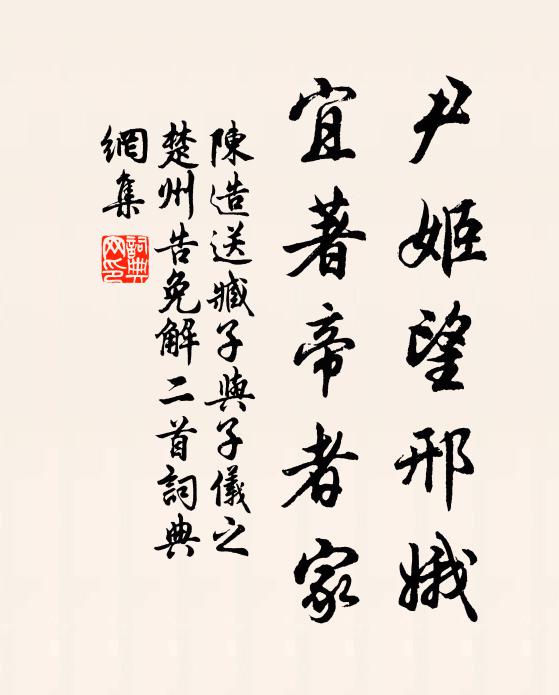 尹姬望邢娥
宜著帝者家
陳造送臧子與子儀之
楚州告免解二首詞典
網集
詞典網印